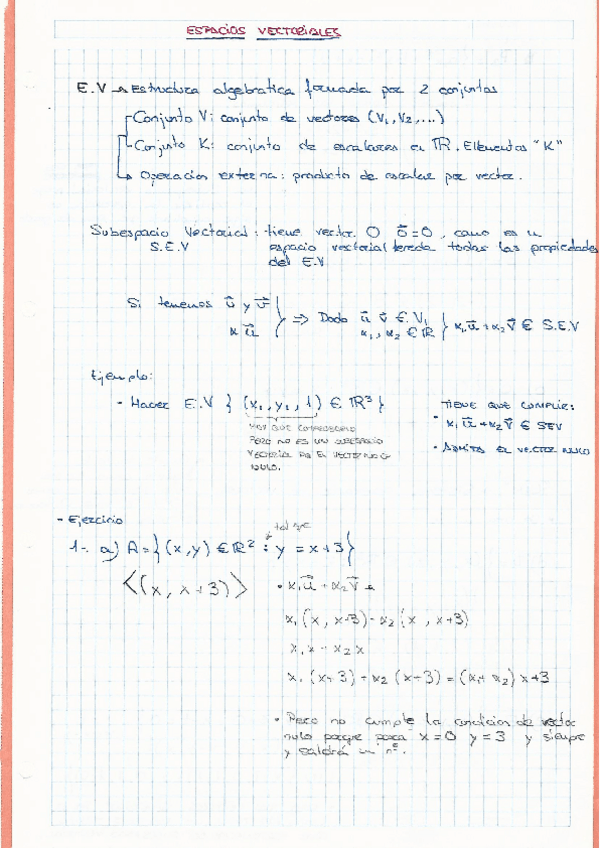 ESPACIOS VECTORIALES
E.V → Estructura algebratica formada por 2 conjuntos
Conjunto V: conjunto de vectores (V₁, V₂, ...)
Conjunto K: conjunto de escalares en ℝ. Elementos "K"
Operación externa: producto de escalar por vector.
Subespacio Vectorial: tiene vector 0 o⃗=0, como es un
S.E.V espacio vectorial hereda todas las propiedades
del E.V
Si tenemos u⃗ y v⃗
α u⃗ } ⇒ Dado u⃗ v⃗ ∈ V,
α₁, α₂ ∈ ℝ } α₁u⃗ + α₂v⃗ ∈ S.E.V
Ejemplo:
- Hacer E.V { (x₁, y₁, 1) ∈ ℝ³ }
HAY QUE COMPROBARLO
PERO NO ES UN SUBESPACIO
VECTORIAL EL VECTOR NO ES
NULO.
TIENE QUE CUMPLIR:
· α₁u⃗ + α₂v⃗ ∈ SEV
· ADMITA EL VECTOR NULO
- Ejercicio
tal que
1-. a) A = { (x, y) ∈ ℝ² : y = x+3 }
<(x, x+3)>
• α₁u⃗ + α₂v⃗ =
α₁(x, x+3) + α₂(x, x+3)
α₁x + α₂x
α₁(x+3) + α₂(x+3) = (α₁+α₂)x+3
• Pero no cumple la condicion de vector
nulo porque para x=0 y=3 y siempre
y saldrá un nº.